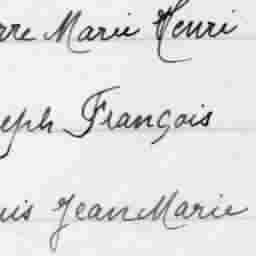 rre Marie Henri
eph François
uis Jean Marie